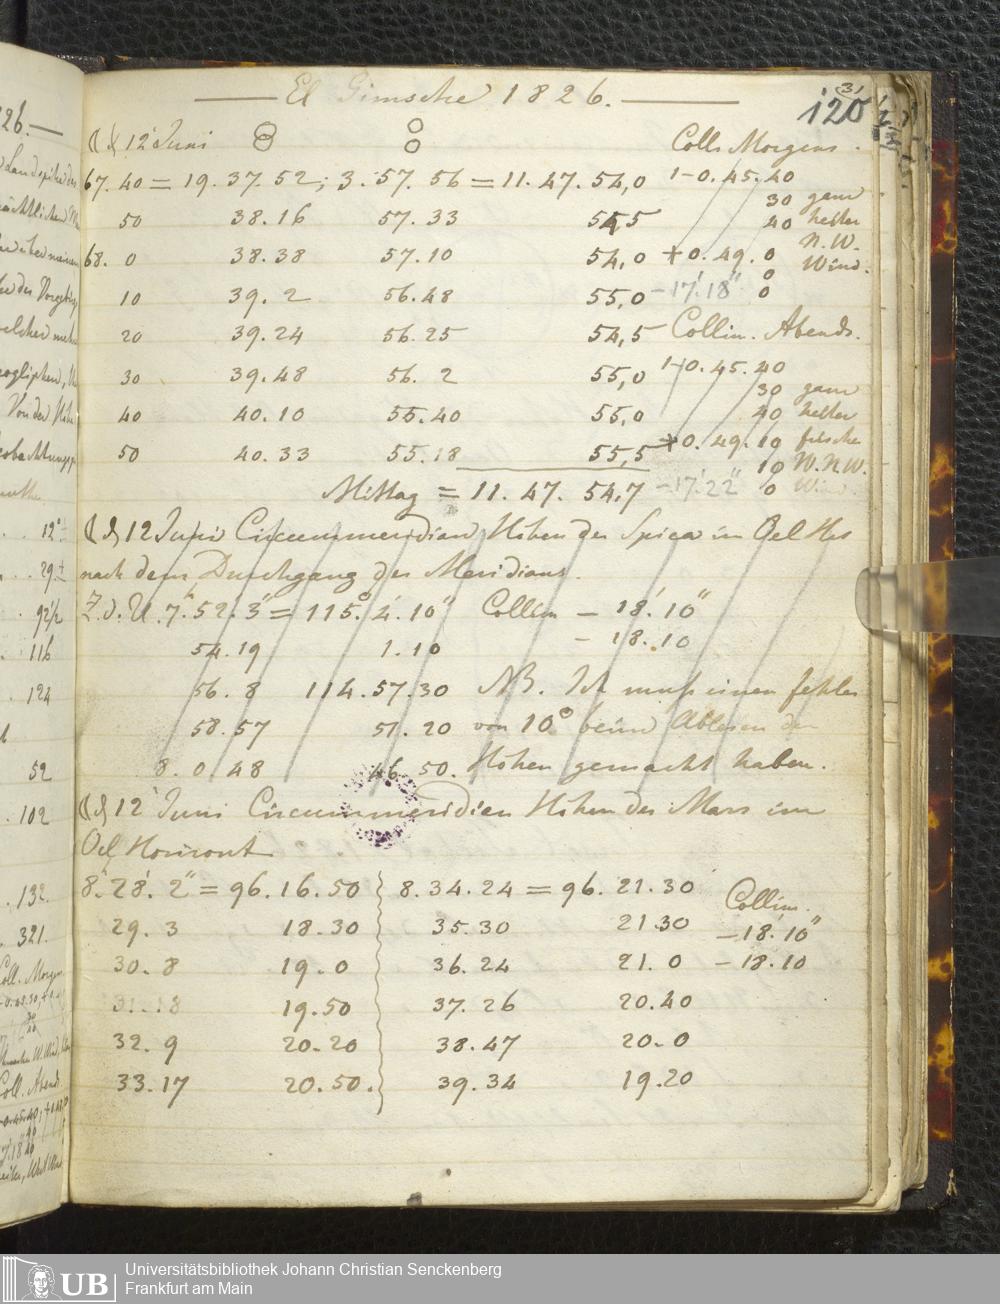 El Gimsche 1826.
31
120
☾ d 12 Juni
Coll. Morgens.
67. 40 = 19. 37. 52; 3. 57. 56 = 11. 47. 54,0
1-0. 45. 40
30 ganz
50 38.16 57.33 54,5
40 heller
N.W.
68. 0 38.38 57.10 54,0
+0. 49. 0 Wind.
0
10 39. 2 56.48 55,0
-17'.18" 0
20 39.24 56.25 54,5
Collim. Abends.
30 39.48 56. 2 55,0
1-0. 45. 40
30 ganz
40 40.10 55.40 55,0
40 heller
50 40.33 55.18 55,5
+0. 49. 10 frischer
10 W.N.W.
Mittag = 11. 47. 54,7
-17'.22" 0 Wind.
☾ d 12 Juni Circummeridian Höhen der Spica im Oel Hor
nach dem Durchgang des Meridians.
Z. d. U. 7. 52. 3" = 115° 4'. 10" Collim - 18'. 10"
54.19 1.10 - 18.10
56. 8 114.57.30 NB. Ich muß einen fehler
58.57 51.20 von 10° beim Ablesen der
8. 0. 48 46.50. Höhen gemacht haben.
☾ d 12 Juni Circummeridien Höhen des Mars im
Oel Horizont
8. 28'. 2" = 96. 16. 50 8. 34. 24 = 96. 21. 30
Collim.
29. 3 18.30 35.30 21.30
-18'. 10"
30. 8 19. 0 36.24 21. 0
-18.10
31.18 19.50 37.26 20.40
32. 9 20.20 38.47 20.0
33.17 20.50. 39.34 19.20
26.
12
29
92 1/2
116
124
52
102
132
321.
Coll. Morgen
Coll. Abend
UB
Universitätsbibliothek Johann Christian Senckenberg
Frankfurt am Main